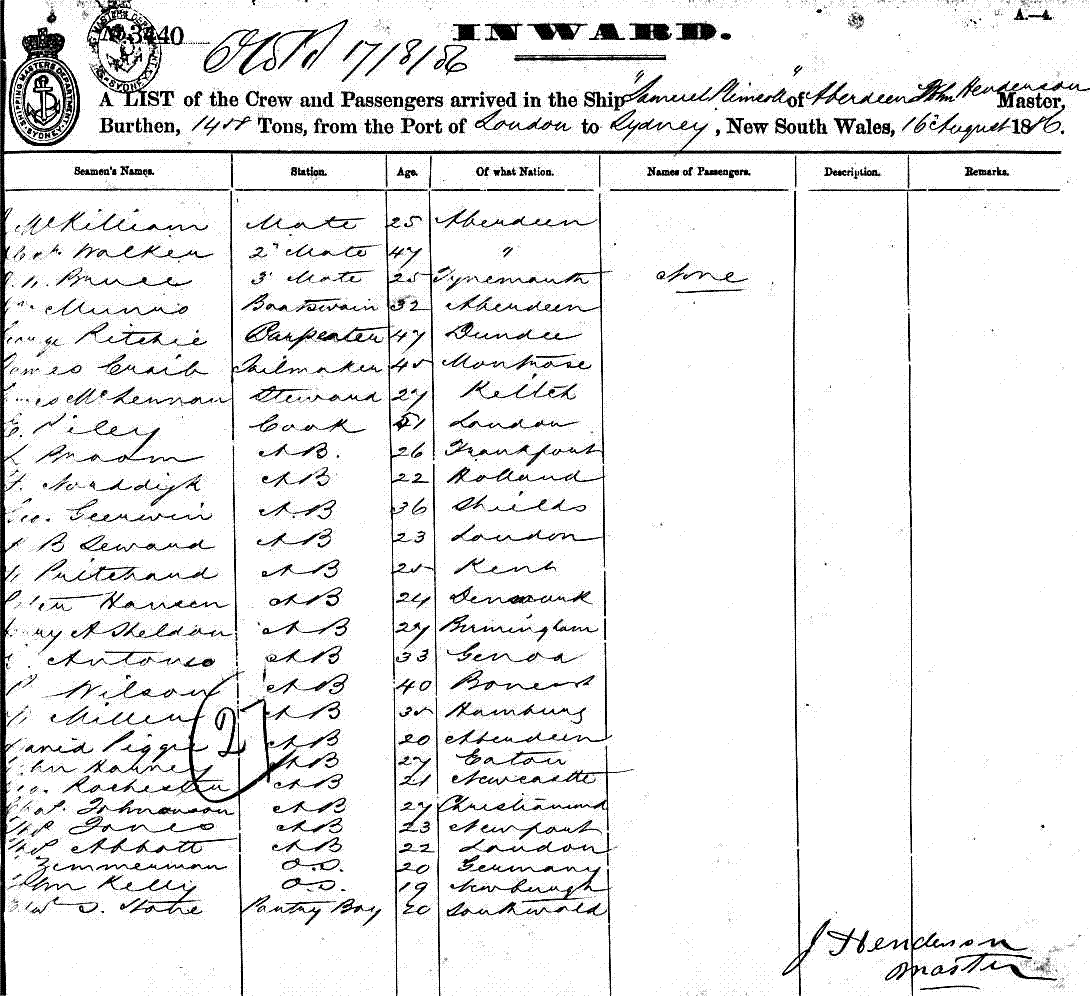 A.—4.
No 3440 INWARD.
17/8/86
SHIPPING MASTERS DEPARTMENT SYDNEY
A LIST of the Crew and Passengers arrived in the Ship "Samuel Plimsoll" of Aberdeen John Henderson Master,
Burthen, 1408 Tons, from the Port of London to Sydney, New South Wales, 16 August 1886.
Seamen's Names. Station. Age. Of what Nation. Names of Passengers. Description. Remarks.
McKilliam Mate 25 Aberdeen
Walker 2d Mate 47 "
Bruce 3d Mate 25 Tynemouth None
Munro Boatswain 32 Aberdeen
George Ritchie Carpenter 47 Dundee
James Craib Sailmaker 45 Montrose
McLennan Steward 27 Keith
Riley Cook 51 London
Broom A.B. 26 Frankfort
Norddigk AB 22 Holland
Geo. Geerwin A.B 36 Shields
B Seward AB 23 London
Pritchard AB 25 Kent
Peter Hansen AB 24 Denmark
Henry A Sheldon AB 27 Birmingham
Antonio AB 33 Genoa
Wilson AB 40
Miller AB 35 Hamburg
David Piggie AB 20 Aberdeen
John Harney AB 27 Eaton
Geo. Rochester AB 21 Newcastle
Chas. Johnanson AB 27 Christiansund
Jones AB 23 Newport
Abbott AB 22 London
Zimmerman O.S. 20 Germany
John Kelly O.S. 19 Newburgh
S. Stone Pantry Boy 20 Southwold
27
J Henderson
Master